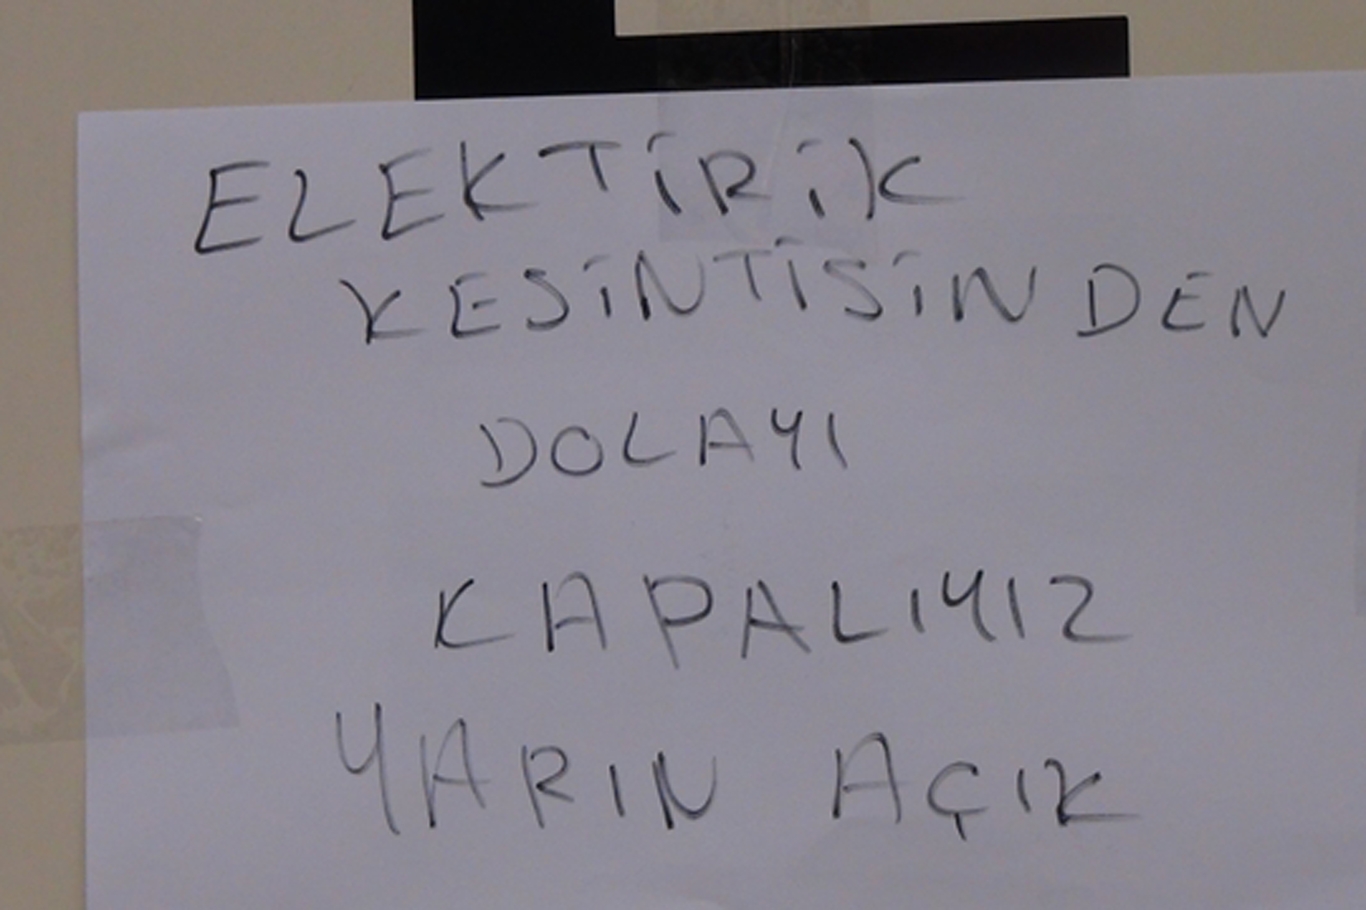 ELEKTİRİK
KESİNTİSİNDEN
DOLAYI
KAPALIYIZ
YARIN AÇIK